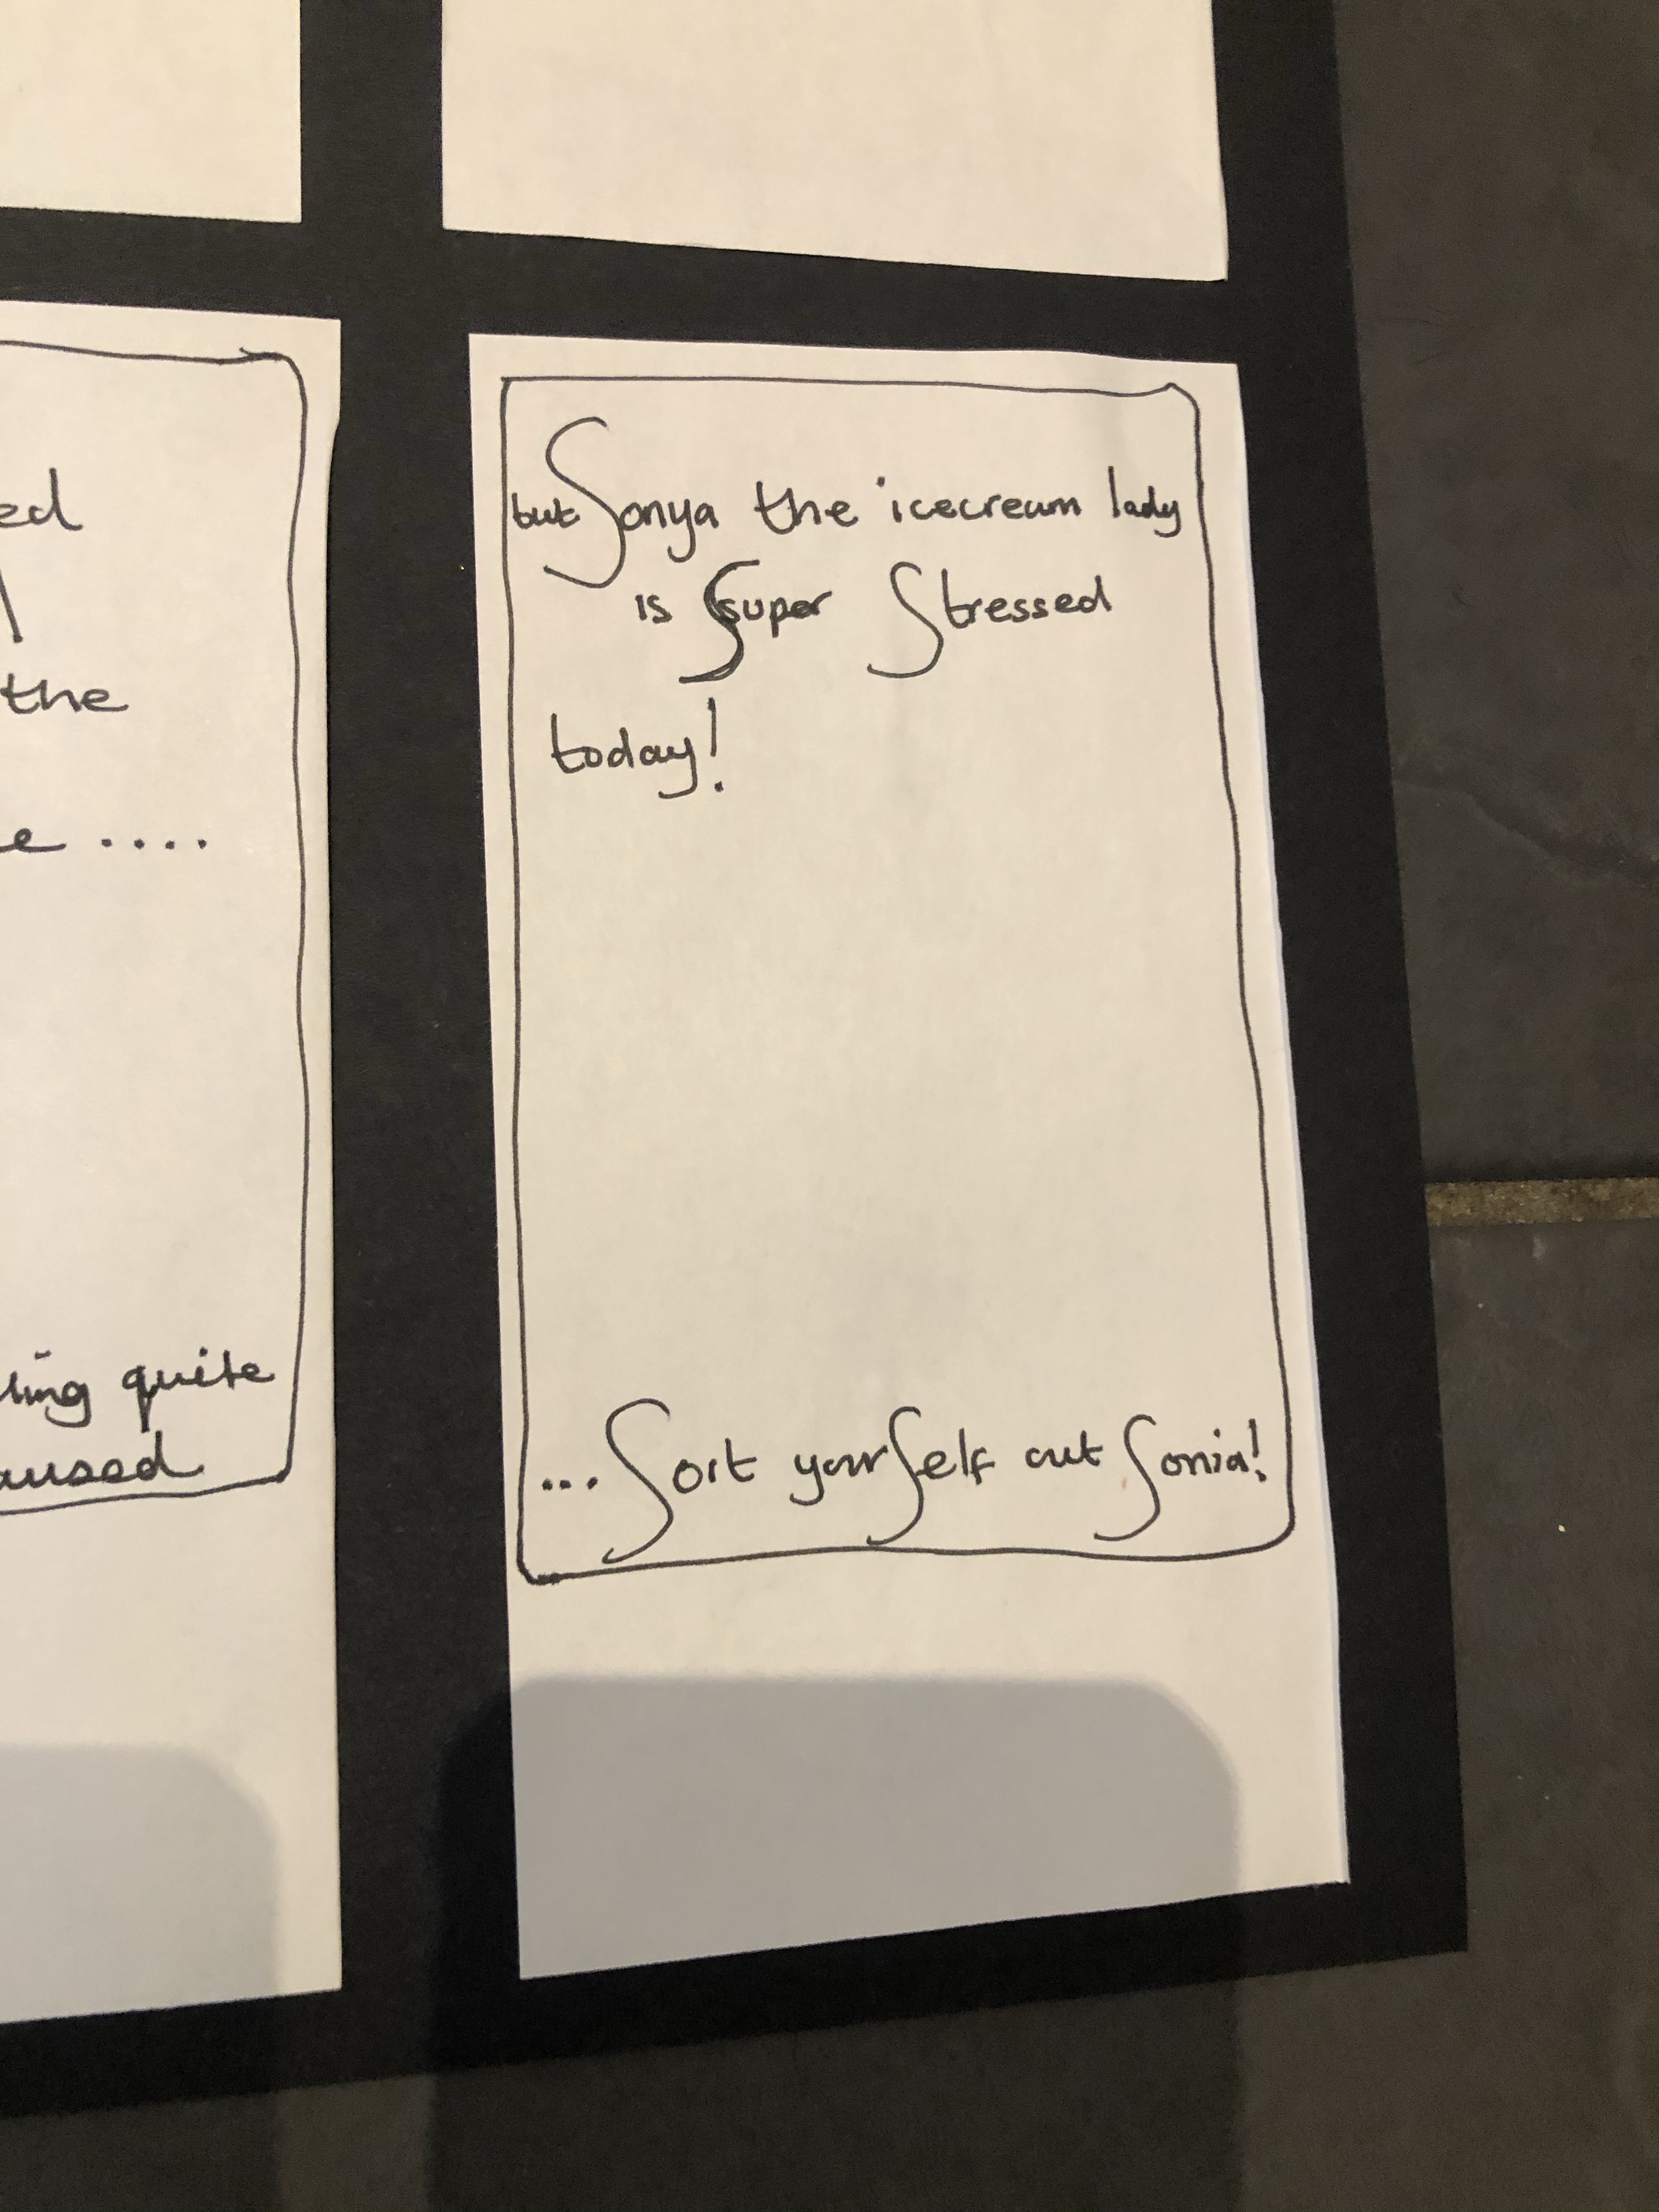 ed
the
e ....
quite
but Sonya the icecream lady
is Super Stressed
today!
... Sort yourSelf out Sonia!